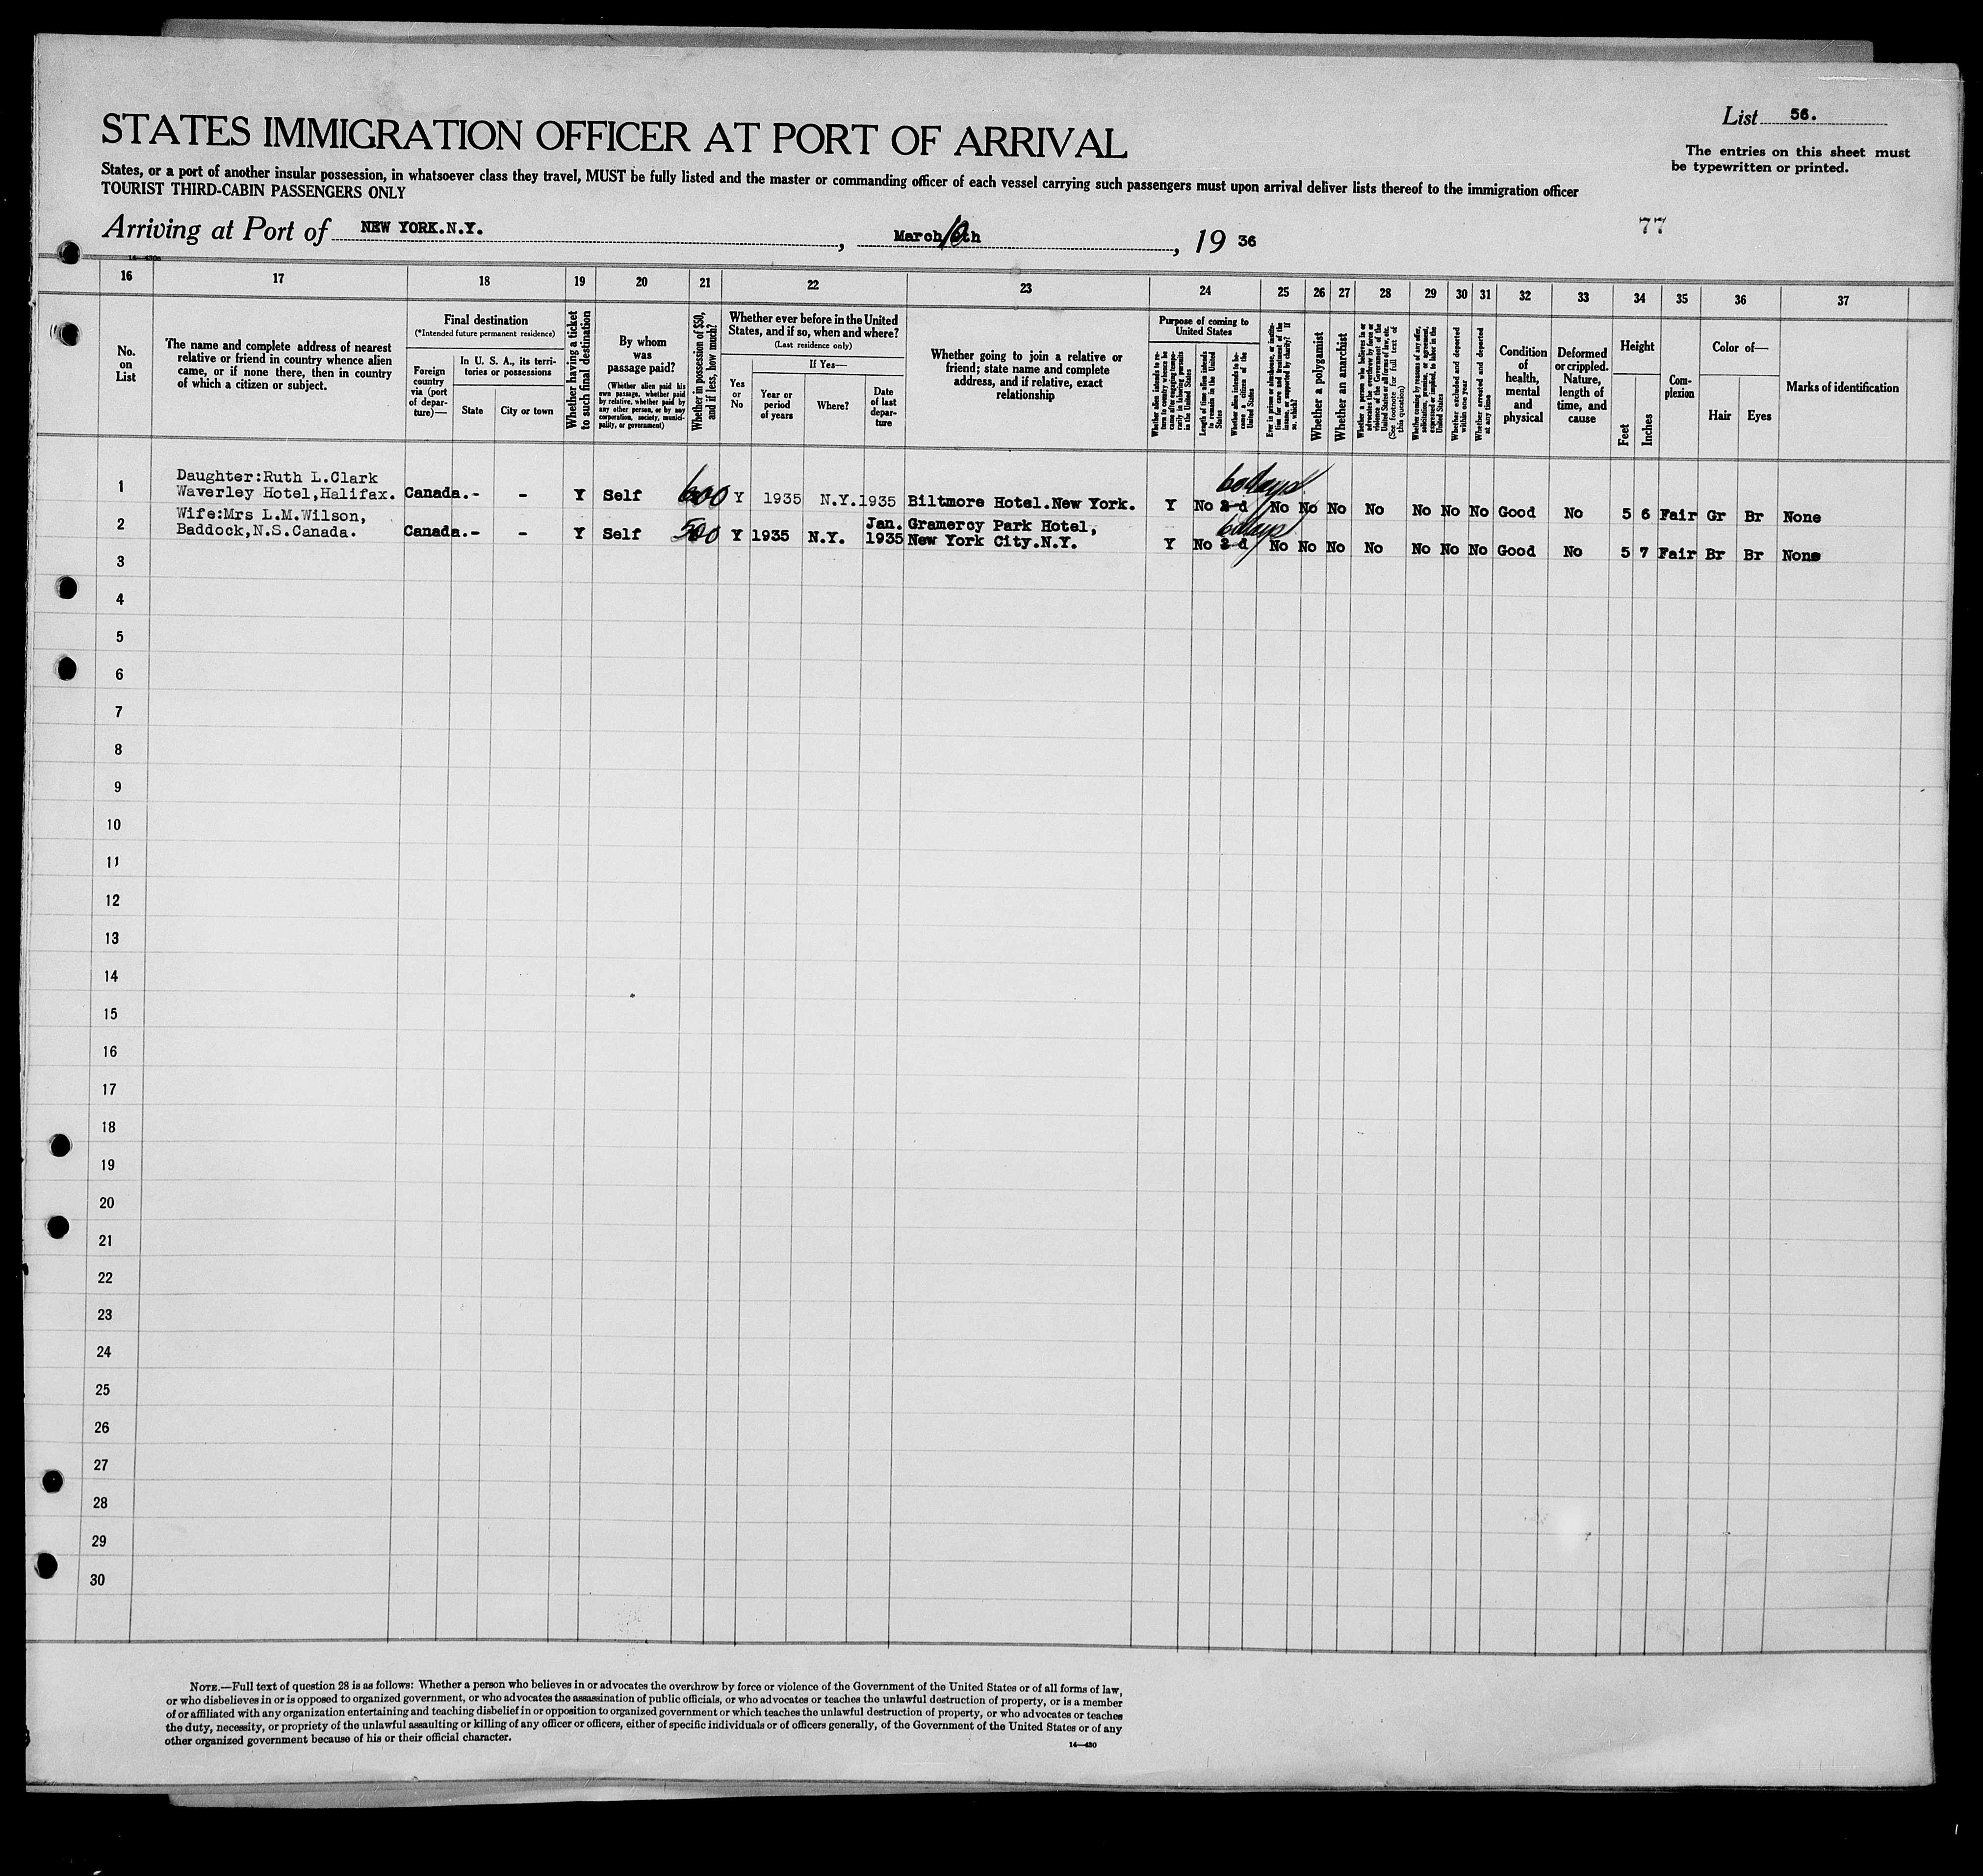 List 56.
The entries on this sheet must
be typewritten or printed.
STATES IMMIGRATION OFFICER AT PORT OF ARRIVAL
States, or a port of another insular possession, in whatsoever class they travel, MUST be fully listed and the master or commanding officer of each vessel carrying such passengers must upon arrival deliver lists thereof to the immigration officer
TOURIST THIRD-CABIN PASSENGERS ONLY
77
Arriving at Port of NEW YORK.N.Y. , March 10th , 19 36
16 17 18 19 20 21 22 23 24 25 26 27 28 29 30 31 32 33 34 35 36 37
No.
on
List
The name and complete address of nearest
relative or friend in country whence alien
came, or if none there, then in country
of which a citizen or subject.
Final destination
(*Intended future permanent residence)
Foreign
country
via (port
of depar-
ture)—
In U. S. A., its terri-
tories or possessions
State
City or town
Whether having a ticket
to such final destination
By whom
was
passage paid?
(Whether alien paid his
own passage, whether paid
by relative, whether paid by
any other person, or by any
corporation, society, munici-
pality, or government)
Whether in possession of $50,
and if less, how much?
Whether ever before in the United
States, and if so, when and where?
(Last residence only)
Yes
or
No
If Yes—
Year or
period
of years
Where?
Date
of last
depar-
ture
Whether going to join a relative or
friend; state name and complete
address, and if relative, exact
relationship
Purpose of coming to
United States
Whether alien intends to re-
turn to country whence he
came after engaging tempo-
rarily in laboring pursuits
in the United States
Length of time alien intends
to remain in the United
States
Whether alien intends to be-
come a citizen of the
United States
Ever in prison or almshouse, or institu-
tion for care and treatment of the
insane, or supported by charity? If
so, which?
Whether a polygamist
Whether an anarchist
Whether a person who believes in or
advocates the overthrow by force or
violence of the Government of the
United States or all forms of law, etc.
(See footnote for full text of
this question)
Whether coming by reason of any offer,
solicitation, promise, or agreement,
expressed or implied, to labor in the
United States
Whether excluded and deported
within one year
Whether arrested and deported
at any time
Condition
of
health,
mental
and
physical
Deformed
or crippled.
Nature,
length of
time, and
cause
Height
Feet
Inches
Com-
plexion
Color of—
Hair
Eyes
Marks of identification
Daughter:Ruth L.Clark
60 days
1 Waverley Hotel,Halifax. Canada.- - Y Self 600 Y 1935 N.Y. 1935 Biltmore Hotel.New York. Y No No No No No No No No Good No 5 6 Fair Gr Br None
Wife:Mrs L.M.Wilson, Jan. Gramercy Park Hotel, 60 days
2 Baddock,N.S.Canada. Canada.- - Y Self 500 Y 1935 N.Y. 1935 New York City.N.Y. Y No No No No No No No No Good No 5 7 Fair Br Br None
3
4
5
6
7
8
9
10
11
12
13
14
15
16
17
18
19
20
21
22
23
24
25
26
27
28
29
30
NOTE.—Full text of question 28 is as follows: Whether a person who believes in or advocates the overthrow by force or violence of the Government of the United States or of all forms of law,
or who disbelieves in or is opposed to organized government, or who advocates the assassination of public officials, or who advocates or teaches the unlawful destruction of property, or is a member
of or affiliated with any organization entertaining and teaching disbelief in or opposition to organized government or which teaches the unlawful destruction of property, or who advocates or teaches
the duty, necessity, or propriety of the unlawful assaulting or killing of any officer or officers, either of specific individuals or of officers generally, of the Government of the United States or of any
other organized government because of his or their official character.
14—430